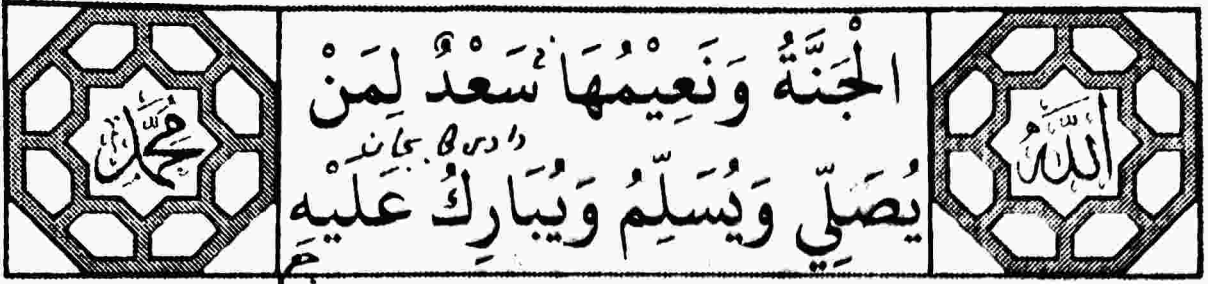 الله
الْجَنَّةُ وَنَعِيْمُهَا سَعْدٌ لِمَنْ
يُصَلِّي وَيُسَلِّمُ وَيُبَارِكُ عَلَيْهِ
مُحَمَّد